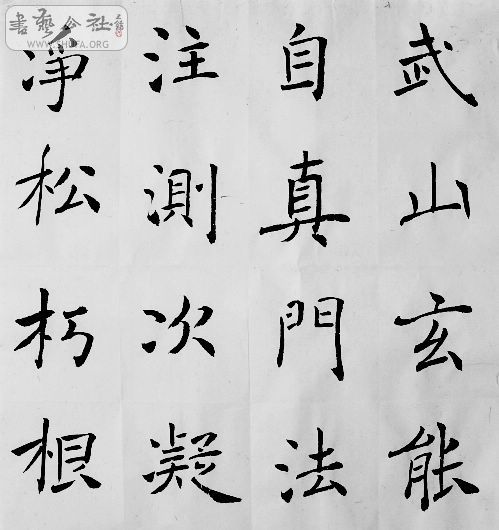 武山玄能
自真門法
注測次凝
淨松朽根
書藝公社
WWW.SHUFA.ORG